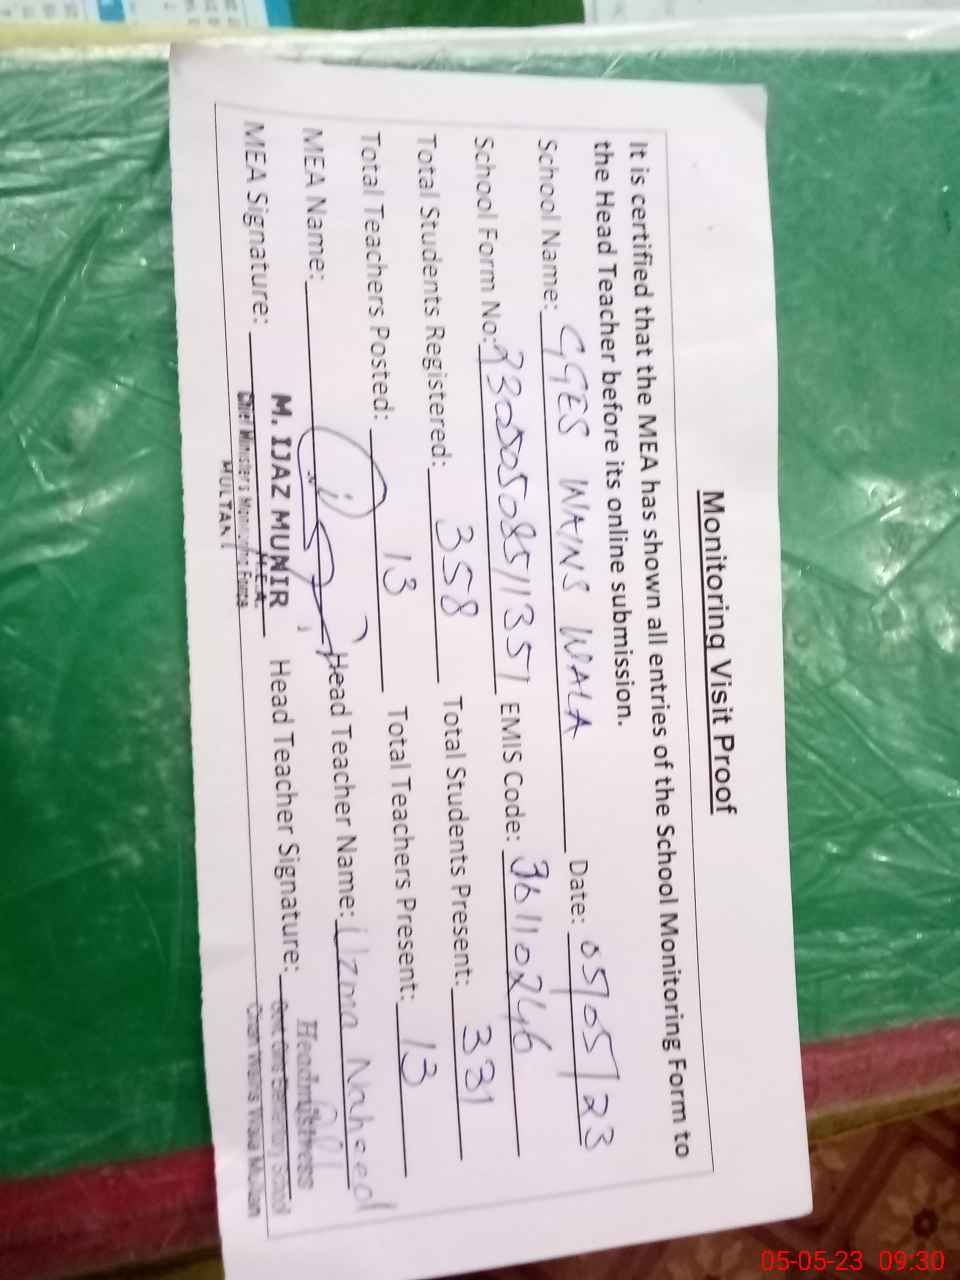 Monitoring Visit Proof
It is certified that the MEA has shown all entries of the School Monitoring Form to
the Head Teacher before its online submission.
School Name: GGES WAINS WALA Date: 05/05/23
School Form No: 33050508511351 EMIS Code: 36110246
Total Students Registered: 358 Total Students Present: 331
Total Teachers Posted: 13 Total Teachers Present: 13
MEA Name: Head Teacher Name: Uzma Naheed
MEA Signature: Head Teacher Signature:
M. IJAZ MUNIR
M.E.A.
Chief Minister's Monitoring Force
MULTAN
Headmistress
Govt. Girls Elementary School
Wains Wala Multan
05-05-23 09:30